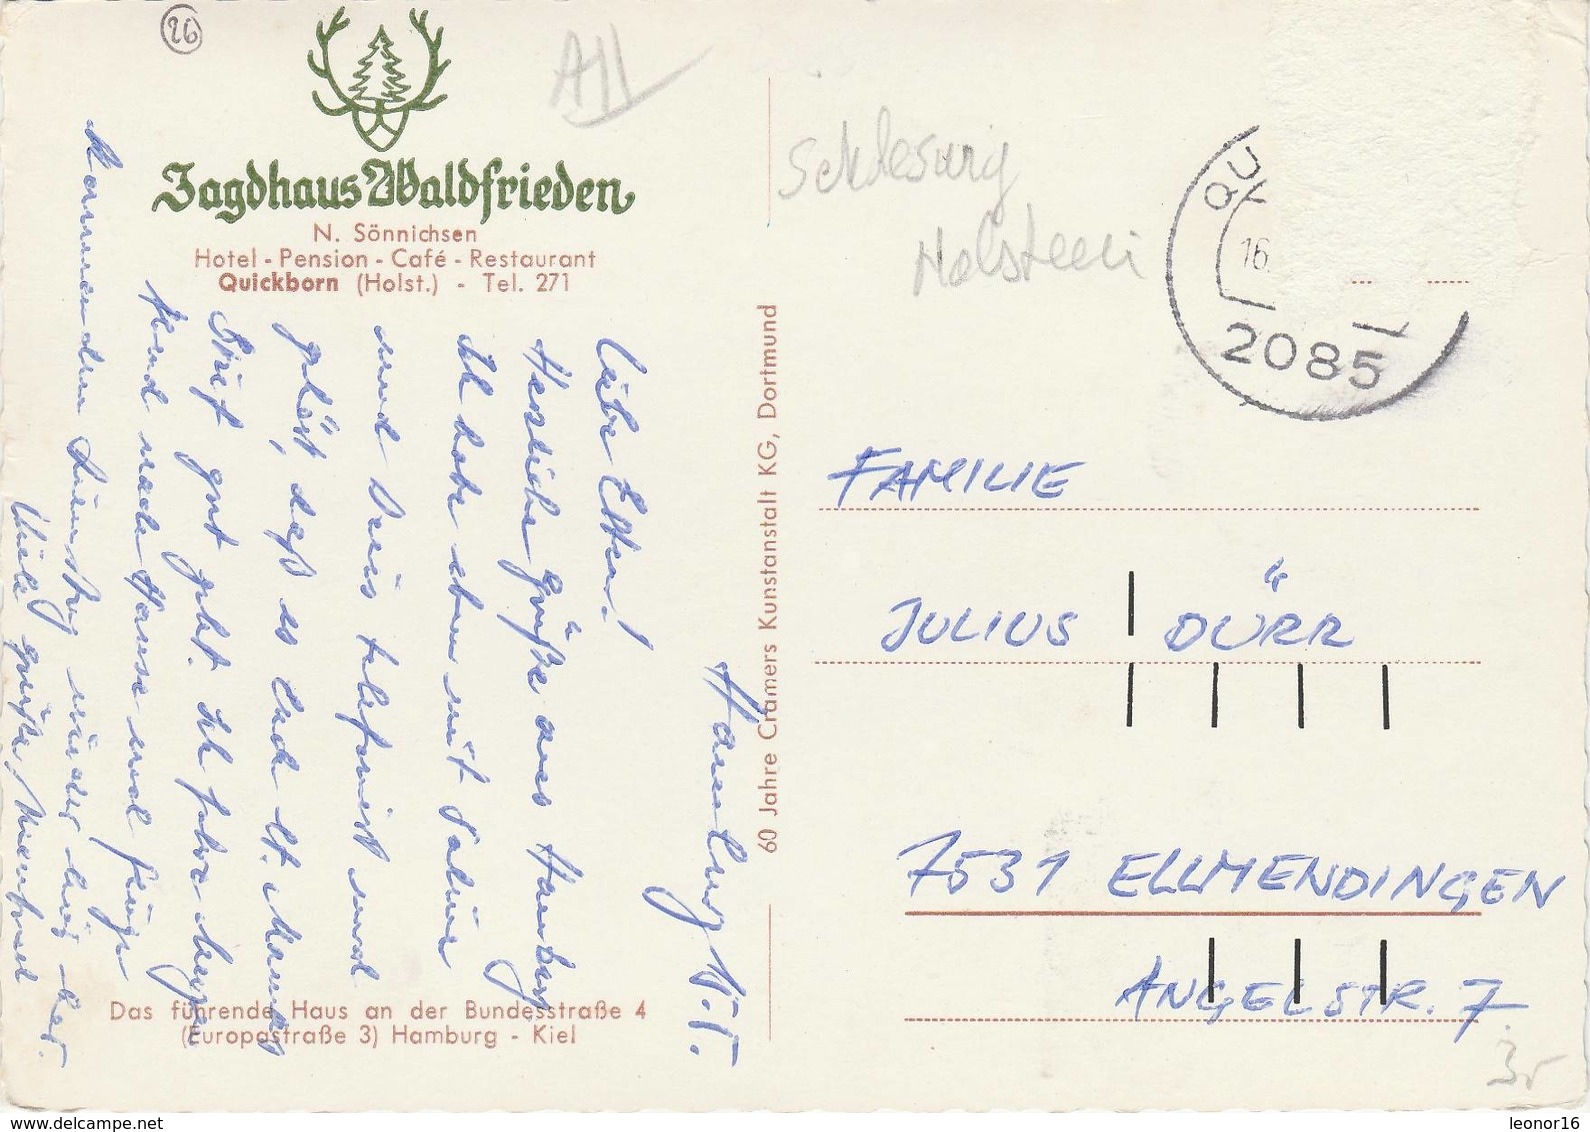 26
All
Jagdhaus Waldfrieden
N. Sönnichsen
Hotel - Pension - Café - Restaurant
Quickborn (Holst.) - Tel. 271
Schleswig
Holstein
QU
16.
2085
60 Jahre Cramers Kunstanstalt KG, Dortmund
Hamburg 15.
Liebe Eltern!
Herzliche Grüße aus Hamburg
Ich habe eben mit
und telefoniert und
gehört, daß es Euch lt.
Brief gut geht. Ich fahre
nach Hause und
kommenden Dienstag wieder hier her.
Viele Grüße,
FAMILIE
JULIUS DÜRR
7531 ELLMENDINGEN
ANGELSTR. 7
Das führende Haus an der Bundesstraße 4
(Europastraße 3) Hamburg - Kiel
www.delcampe.net
leonor16